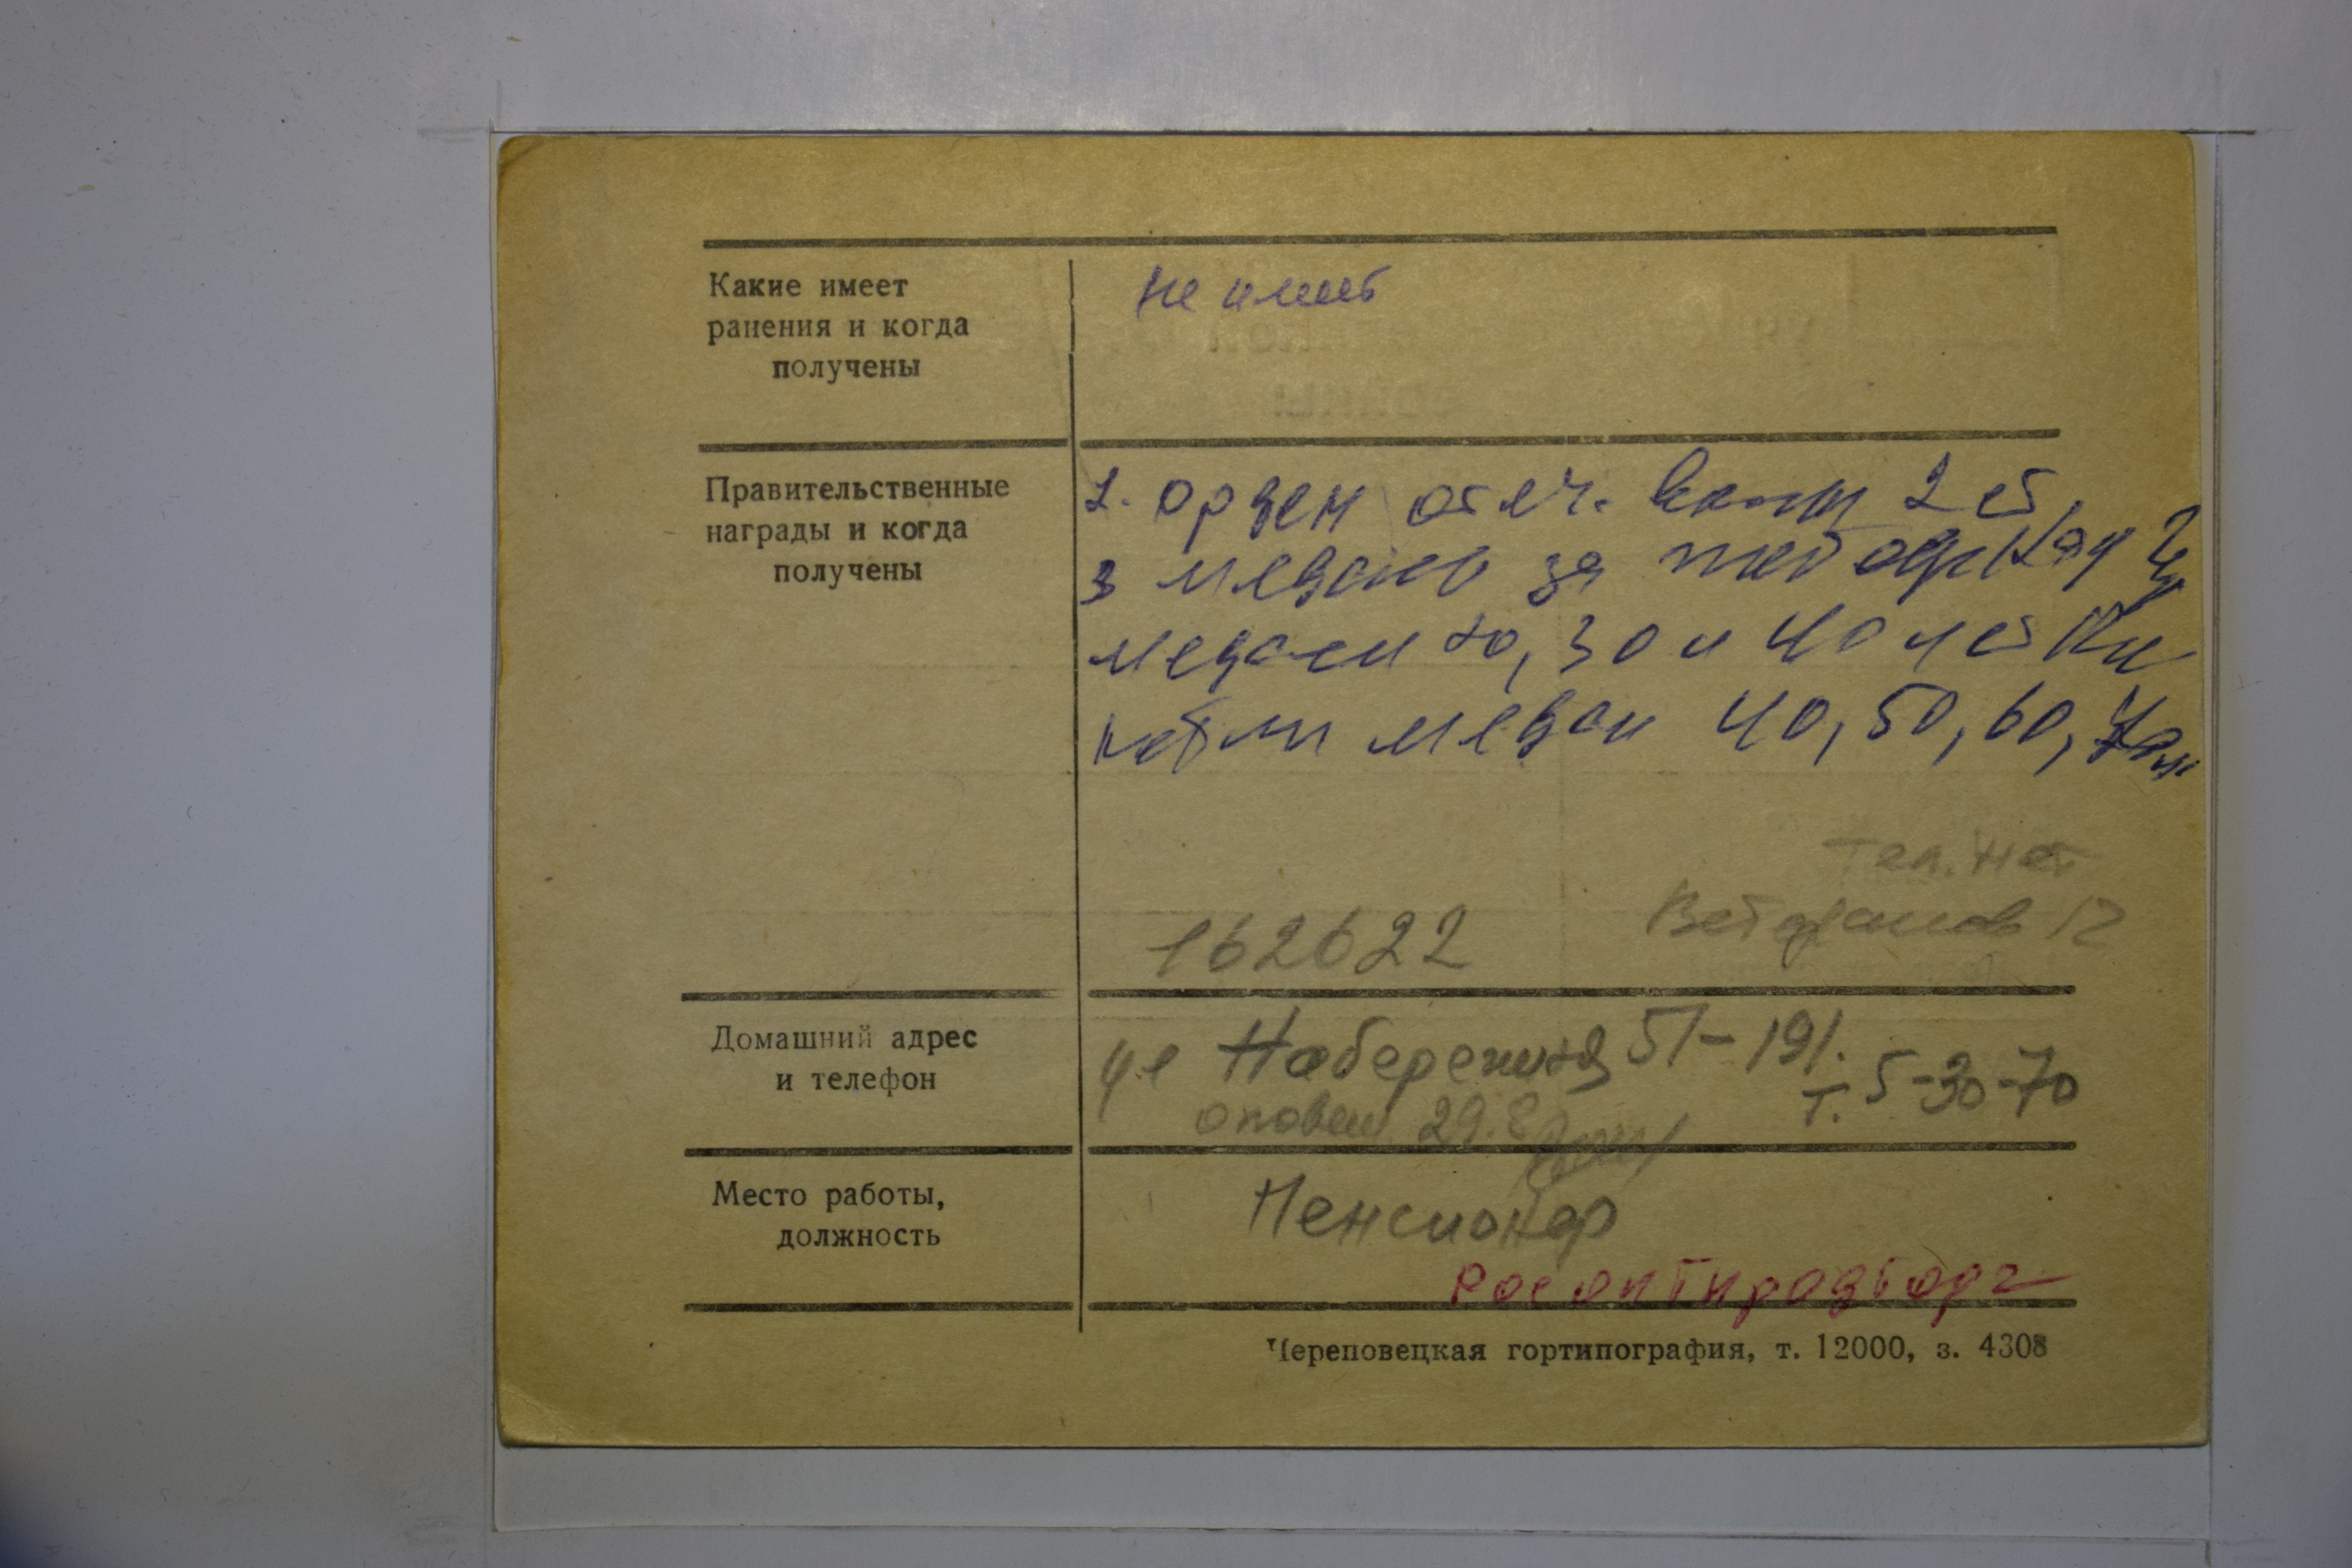 Какие имеет
ранения и когда
получены
не имеет
Правительственные
награды и когда
получены
1. орден отеч. войны 2 ст.
3 медаль за победу над Г.
медали 20, 30 и 40 летия
медали 40, 50, 60, 70
Тел. нет
Ветеранов 12
162622
Домашний адрес
и телефон
ул Набережная 51-191.
т. 5-30-70
оповещ. 29.8
Место работы,
должность
Пенсионер
Росоптпродторг
Череповецкая гортипография, т. 12000, з. 4308